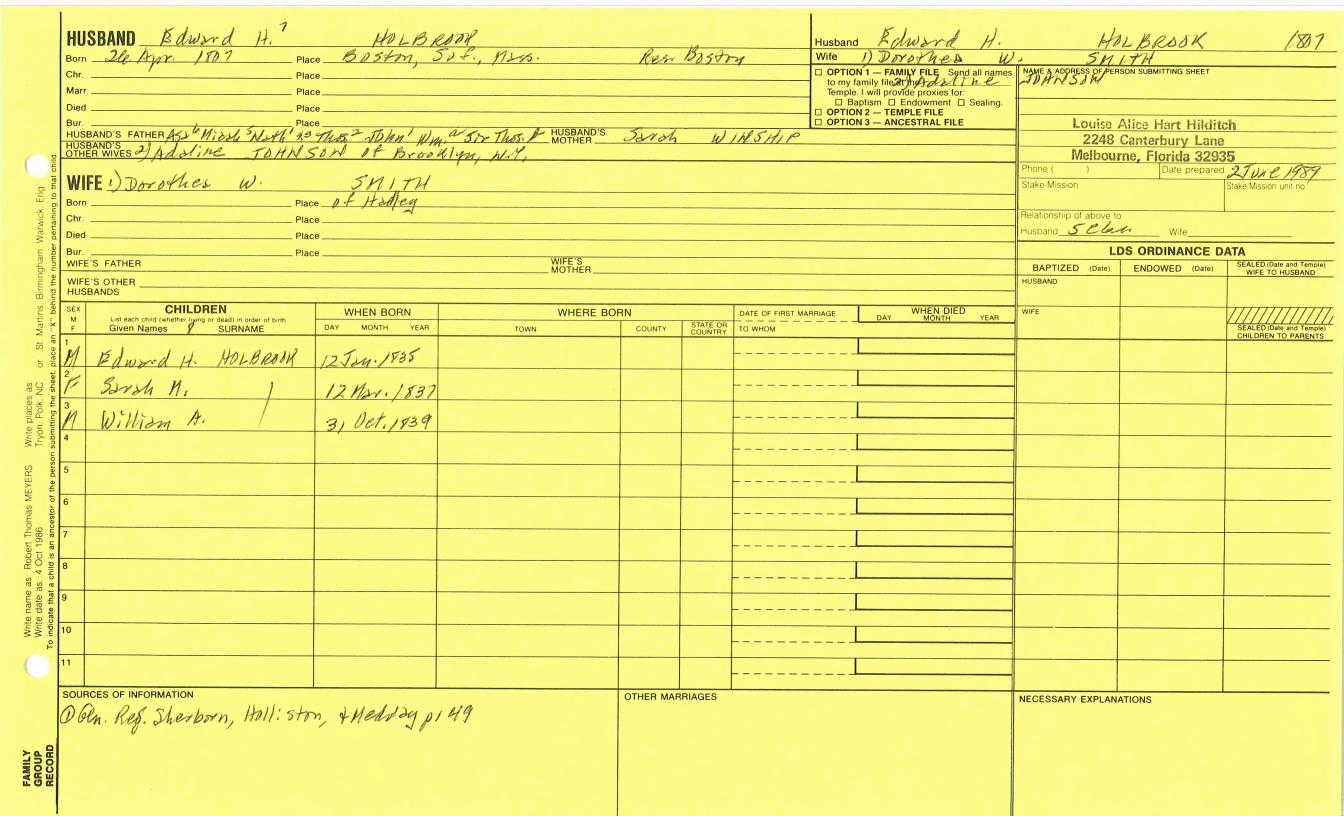 HUSBAND Edward H.⁷ HOLBROOK
Born 26 Apr. 1807 Place Boston, Suf., Mass. Res. Boston
Chr. Place
Marr. Place
Died Place
Bur. Place
HUSBAND'S FATHER HUSBAND'S MOTHER Sarah WINSHIP
HUSBAND'S OTHER WIVES 2) Adaline JOHNSON of Brooklyn, N.Y.
WIFE 1) Dorothea W. SMITH
Born Place of Hadley
Chr. Place
Died Place
Bur. Place
WIFE'S FATHER WIFE'S MOTHER
WIFE'S OTHER HUSBANDS
Husband Edward H. HOLBROOK 1807
Wife 1) Dorothea W. SMITH
2) Adaline JOHNSON
☐ OPTION 1 — FAMILY FILE Send all names
to my family file at the
Temple. I will provide proxies for:
☐ Baptism ☐ Endowment ☐ Sealing.
☐ OPTION 2 — TEMPLE FILE
☐ OPTION 3 — ANCESTRAL FILE
NAME & ADDRESS OF PERSON SUBMITTING SHEET
Louise Alice Hart Hilditch
2248 Canterbury Lane
Melbourne, Florida 32935
Phone ( ) Date prepared 2 June 1989
Stake-Mission Stake/Mission unit no
Relationship of above to
Husband 5 C Wife
LDS ORDINANCE DATA
BAPTIZED (Date) ENDOWED (Date) SEALED (Date and Temple) WIFE TO HUSBAND
HUSBAND
WIFE
SEALED (Date and Temple) CHILDREN TO PARENTS
SEX M F
CHILDREN
List each child (whether living or dead) in order of birth
Given Names SURNAME
WHEN BORN
DAY MONTH YEAR
WHERE BORN
TOWN COUNTY STATE OR COUNTRY
DATE OF FIRST MARRIAGE
TO WHOM
WHEN DIED
DAY MONTH YEAR
1 M Edward H. HOLBROOK 12 Jan. 1835
2 F Sarah M. 12 Mar. 1837
3 M William A. 31 Oct. 1839
4
5
6
7
8
9
10
11
SOURCES OF INFORMATION
① Gen. Reg. Sherborn, Holliston, & Medway p. 49
OTHER MARRIAGES
NECESSARY EXPLANATIONS
Write name as: Robert Thomas MEYERS Write places as: Tryon, Polk, NC or St. Martins, Birmingham, Warwick, Eng
Write date as: 4 Oct 1986
To indicate that a child is an ancestor of the person submitting the sheet, place an "X" behind the number pertaining to that child.
FAMILY GROUP RECORD